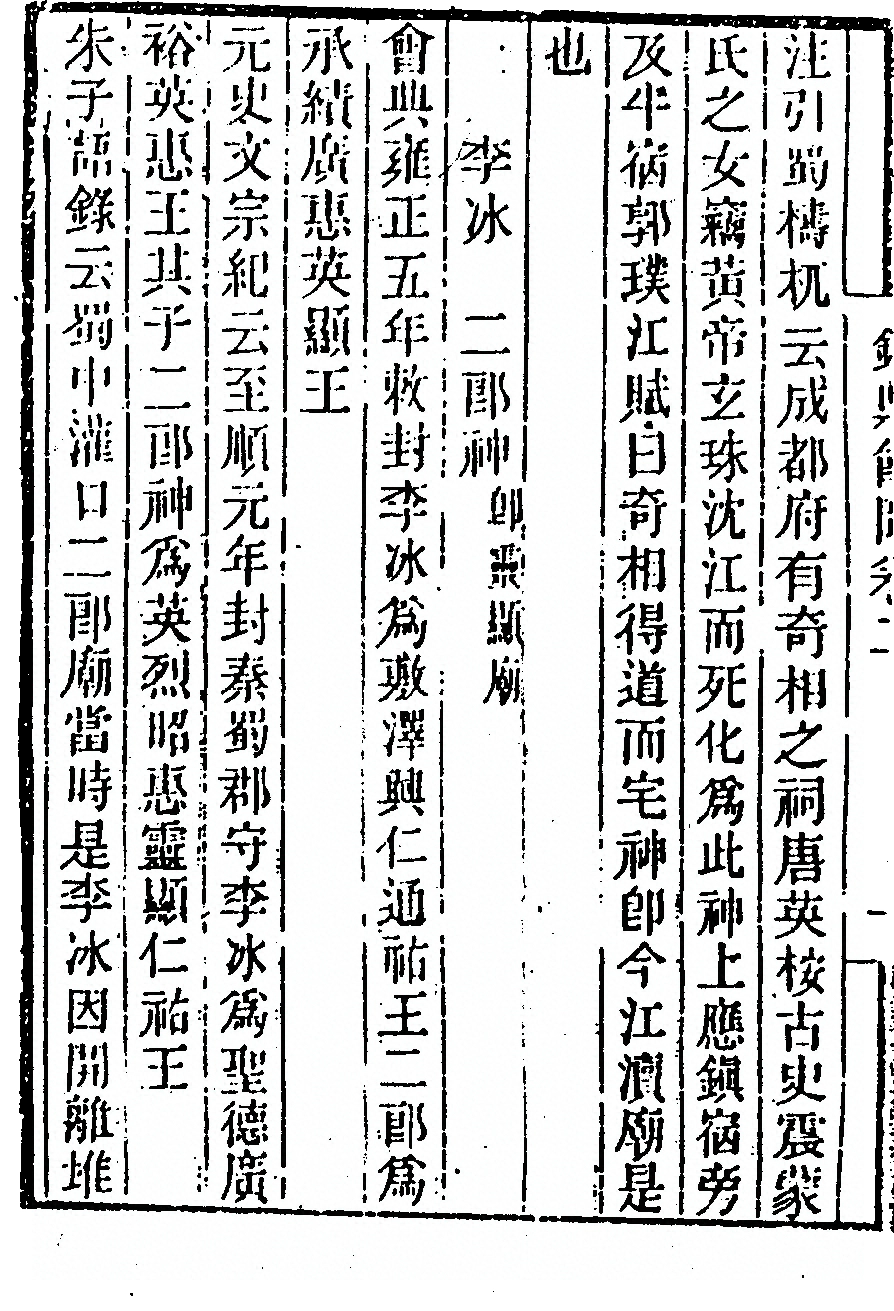 注引蜀檮杌云成都府有奇相之祠唐英桉古史震蒙
氏之女竊黃帝玄珠沈江而死化爲此神上應鎮宿旁
及牛宿郭璞江賦曰奇相得道而宅神卽今江瀆廟是
也
李冰　二郎神卽顯廟
會典雍正五年敕封李冰爲敷澤興仁通祐王二郎爲
承績廣惠英顯王
元史文宗紀云至順元年封秦蜀郡守李冰爲聖德廣
裕英惠王其子二郎神爲英烈昭惠靈顯仁祐王
朱子語錄云蜀中灌口二郎廟當時是李冰因開離堆